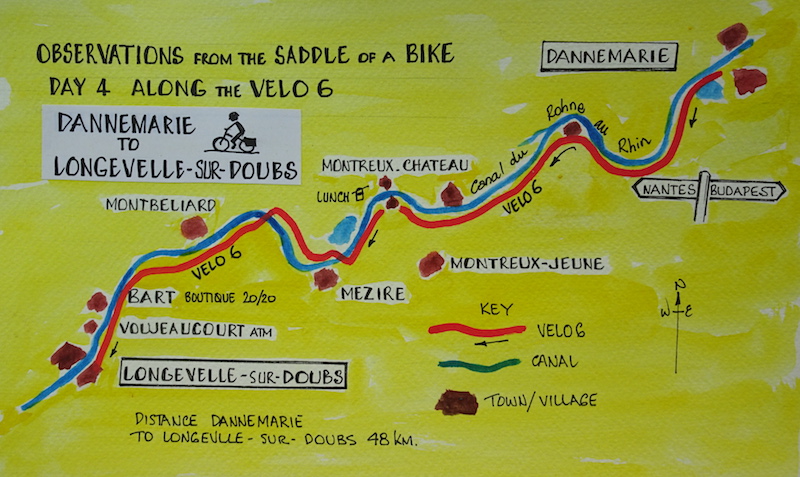 OBSERVATIONS FROM THE SADDLE OF A BIKE
DAY 4 ALONG THE VELO 6
DANNEMARIE
TO
LONGEVELLE-SUR-DOUBS
DANNEMARIE
Canal du Rohne au Rhin
VELO 6
NANTES BUDAPEST
MONTREUX-CHATEAU
LUNCH
MONTBELIARD
VELO 6
MONTREUX-JEUNE
MEZIRE
BART BOUTIQUE 20/20
VOUJEAUCOURT ATM
LONGEVELLE-SUR-DOUBS
KEY
VELO 6
CANAL
TOWN/VILLAGE
N
W E
DISTANCE DANNEMARIE
TO LONGEVLLE-SUR-DOUBS 48 KM.